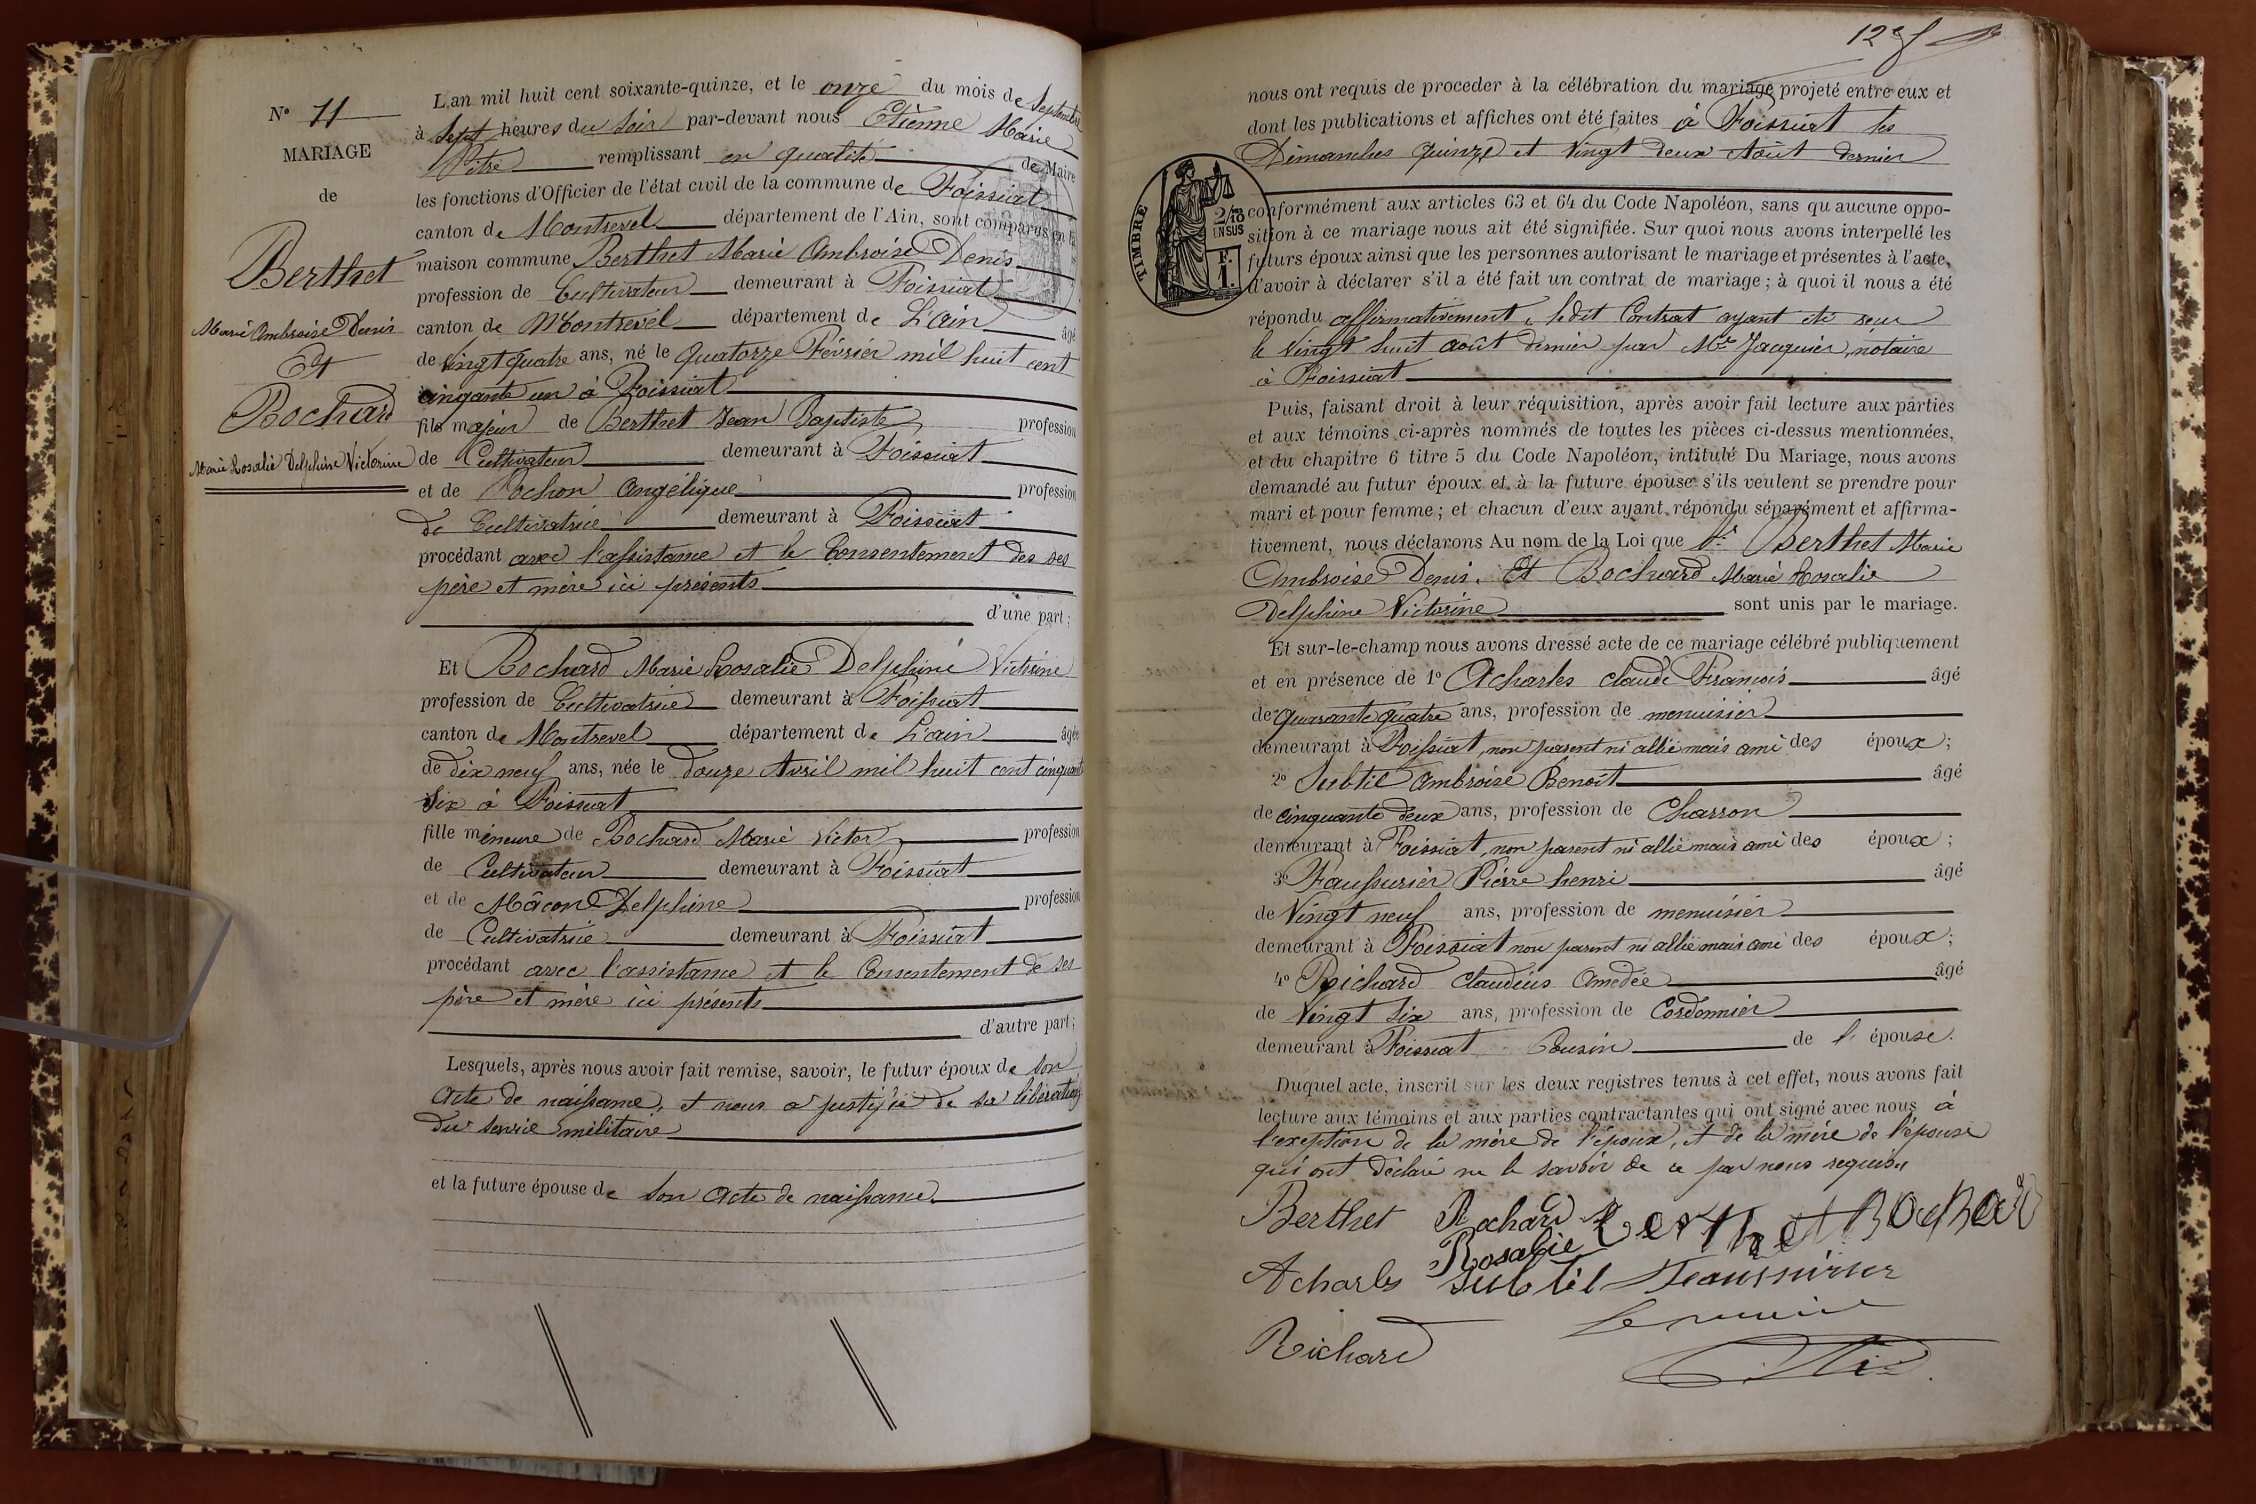 N° 11
MARIAGE
de
Berthet
Marie Ambroise Denis
Et
Bochard
Marie Rosalie Delphine Victorine
L'an mil huit cent soixante-quinze, et le onze du mois de Septembre
à Sept heures du Soir par-devant nous Etienne Marie
Pitre remplissant en qualité de Maire
les fonctions d'Officier de l'état civil de la commune de Foissiat
canton de Montrevel département de l'Ain, sont comparus en la
maison commune Berthet Marie Ambroise Denis
profession de Cultivateur demeurant à Foissiat
canton de Montrevel département de L'ain âgé
de vingt quatre ans, né le quatorze Février mil huit cent
cinqante un à Foissiat
fils majeur de Berthet Jean Baptiste profession
de Cultivateur demeurant à Foissiat
et de Pochon Angélique profession
de Cultivatrice demeurant à Foissiat
procédant avec l'assistance et le Consentement des ses
père et mère ici présents
d'une part;
Et Bochard Marie Rosalie Delphine Victorine
profession de Cultivatrice demeurant à Foissiat
canton de Montrevel département de L'ain âgée
de dix neuf ans, née le douze Avril mil huit cent cinquante
Six à Foissiat
fille mineure de Bochard Marie Victor profession
de Cultivateur demeurant à Foissiat
et de Mâcon Delphine profession
de Cultivatrice demeurant à Foissiat
procédant avec l'assistance et le Consentement de ses
père et mère ici présents
d'autre part;
Lesquels, après nous avoir fait remise, savoir, le futur époux de son
acte de naissance, et nous a justifié de sa libération
du service militaire
et la future épouse de son acte de naissance
nous ont requis de proceder à la célébration du mariage projeté entre eux et
dont les publications et affiches ont été faites à Foissiat les
Dimanches quinze et vingt deux Août dernier
TIMBRE
2/10 EN SUS
F. 1.
conformément aux articles 63 et 64 du Code Napoléon, sans qu aucune oppo-
sition à ce mariage nous ait été signifiée. Sur quoi nous avons interpellé les
futurs époux ainsi que les personnes autorisant le mariage et présentes à l'acte,
d'avoir à déclarer s'il a été fait un contrat de mariage; à quoi il nous a été
répondu affirmativement, ledit Contrat ayant été reçu
le vingt huit août dernier par Me Jacquier, notaire
à Foissiat
Puis, faisant droit à leur réquisition, après avoir fait lecture aux parties
et aux témoins ci-après nommés de toutes les pièces ci-dessus mentionnées,
et du chapitre 6 titre 5 du Code Napoléon, intitulé Du Mariage, nous avons
demandé au futur époux et à la future épouse s'ils veulent se prendre pour
mari et pour femme; et chacun d'eux ayant répondu séparément et affirma-
tivement, nous déclarons Au nom de la Loi que Berthet Marie
Ambroise Denis. Et Bochard Marie Rosalie
Delphine Victorine sont unis par le mariage.
Et sur-le-champ nous avons dressé acte de ce mariage célébré publiquement
et en présence de 1° Acharles Claude François âgé
de quarante quatre ans, profession de menuisier
demeurant à Foissiat, non parent ni allié mais ami des époux;
2° Subtil Ambroise Benoît âgé
de cinquante deux ans, profession de Charron
demeurant à Foissiat, non parent ni allié mais ami des époux;
3° Faussurier Pierre henri âgé
de Vingt neuf ans, profession de menuisier
demeurant à Foissiat non parent ni allié mais ami des époux;
4° Richard Claudius Amédée âgé
de Vingt six ans, profession de Cordonnier
demeurant à Foissiat Cousin de l' épouse.
Duquel acte, inscrit sur les deux registres tenus à cet effet, nous avons fait
lecture aux témoins et aux parties contractantes qui ont signé avec nous à
l'exeption de la mère de l'époux, et de la mère de l'épouse
qui ont déclaré ne le savoir de ce par nous requises
Berthet Bochard Berthet Bochard
Rosalie
Acharles Subtil Feaussurier
Le maire
Richard